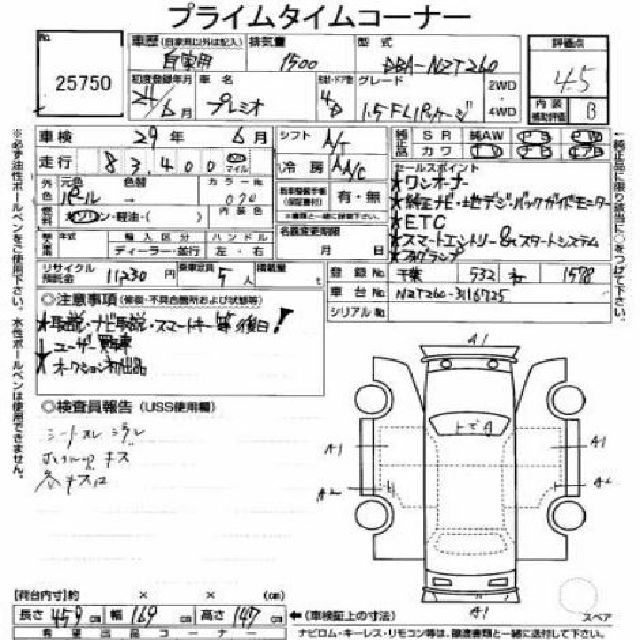 プライムタイムコーナー
No.
25750
車歴 (自家用以外は記入)
自家用
排気量
1500
型式
DBA-NZT260
評価点
4.5
内装補助評価
B
初度登録年月
21/6月
車名
プレミオ
形状・ドア数
4D
グレード
1.5F Lパッケージ
2WD
4WD
車検 29年 6月
走行 83,400 マイル
シフト
A/T
冷房
AAC
純正品 SR 純AW
純正品 カワ
外色
元色
パール
色替
カラーNo.
070
燃料
ガソリン・軽油・( )
内装色
年式
輸入区分
ディーラー・並行
ハンドル
左・右
有・無
名義変更期限
月 日
セールスポイント
★ワンオーナー
★純正ナビ・地デジ・バックガイドモニター
★ETC
★スマートエントリー&スタートシステム
リサイクル預託金
11,230円
乗車定員
5人
積載量
登録No.
千葉 532 1578
車台No.
NZT260-3116725
シリアルNo.
◎注意事項 (修復・不具合箇所および状態等)
★取説・ナビ取説・スマートキー等後日!
★ユーザー買取車
★オークション初出品
◎検査員報告 (USS使用欄)
シートスレ
キス
A1
トビA
A1
A1
A2
A2
A1
スペア
【荷台内寸】約 × × (cm)
長さ 459cm 幅 169cm 高さ 147cm
←(車検証上の寸法)
希望出品コーナー
ナビロム・キーレス・リモコン等は、譲渡書類と一緒に送付して下さい。
※必ず油性ボールペンをご使用下さい。水性ボールペンは使用できません。